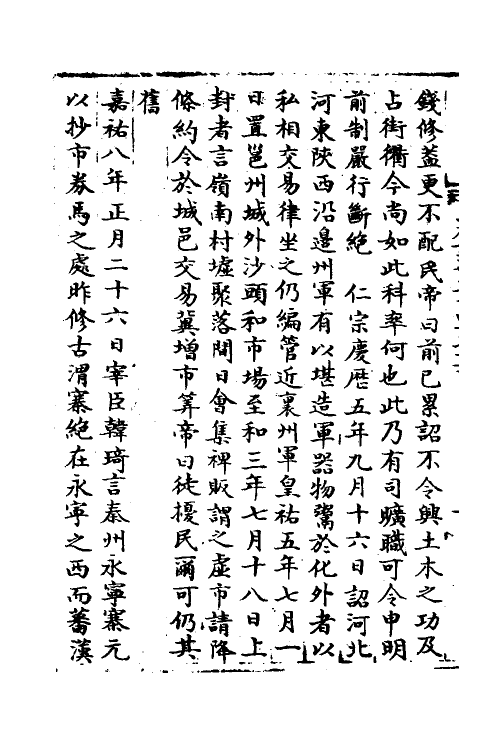 錢修蓋更不配民帝曰前已累詔不令興土木之功及
占街衢今尚如此科率何也此乃有司曠職可令申明
前制嚴行斷絶　仁宗慶厯五年九月十六日詔河北
河東陜西沿邉州軍有以堪造軍器物鬻於化外者以
私相交易律坐之仍編管近裏州軍皇祐五年七月一
日置邕州城外沙頭和市場至和三年七月十八日上
封者言嶺南村墟聚落間日會集裨販謂之虚市請降
條約令於城邑交易冀增市筭帝曰徒擾民爾可仍其
舊
嘉祐八年正月二十六日宰臣韓琦言秦州永寧寨元
以抄市券馬之處昨修古渭寨絶在永寧之西而蕃漢